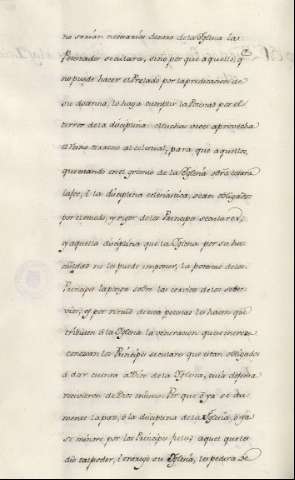 no serian necesarios dentro de la Yglesia las
Potestades seculares, sino por que aquello, q
no puede hacer el Prelado por la predicacion de
su doctrina, lo haga cumplir la Potestad por el
terror de la disciplina: Muchas veces aprovecha
el Reino terreno al celestial, para que aquellos,
que estando en el gremio de la Yglesia obran contra
la fee, ò la disciplina eclesiastica, sean obligados
por el miedo, y rigor de los Principes seculares;
y aquella disciplina que la Yglesia por su hu-
mildad no les puede imponer, la potestad de los
Principes la ponga sobre las cervices de los sober-
vios; y por virtud de esta potestad les hacen que
tributen à la Yglesia la veneracion que merece.
Conozcan los Principes seculares que estan obligados
à dar cuenta a Dios de la Yglesia, cuia defensa
recivieron de Dios mismo: Por que ò ya se au-
mente la paz, ò la disciplina de la Yglesia, ò ya
se minore por los Principes fieles; aquel que les
diò tal poder, è encargò su Yglesia, les pedirà de